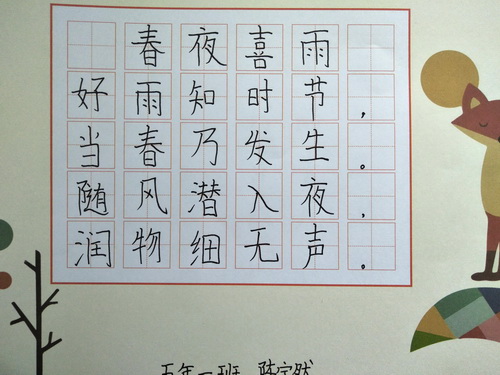 春夜喜雨
好雨知时节，
当春乃发生。
随风潜入夜，
润物细无声。
五年一班 陈宁然